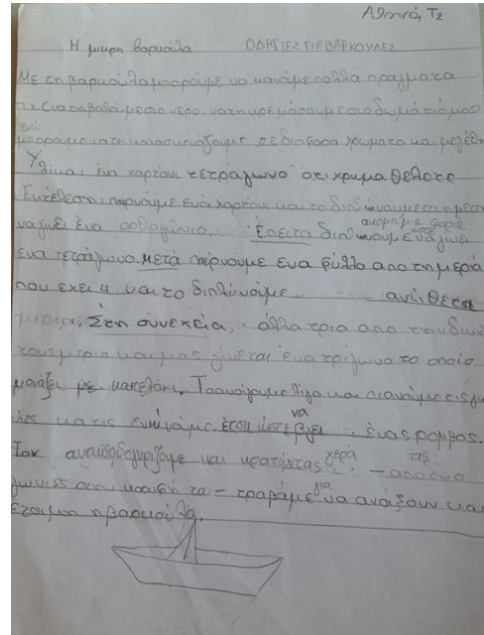 Αθηνά, Τ2
Η μικρη βαρκούλα ΟΔΗΓΙΕΣ ΓΙΑ ΒΑΡΚΟΥΛΕΣ
Με τη βαρκούλα μπορούμε να κανουμε πολλά πραγματα
π.χ. να τη βαλουμε στο νερο, να τη κρεμάσουμε στο δωμάτιο μας
επίσης
μπορούμε να τη κατασκευάζουμε σε διαφορα χρωματα και μεγέθη
Υλικα: ένα χαρτονι τετράγωνο ότι χρωμα θέλετε
Εκτέλεση: παιρνουμε ενα χαρτονι και το διπλωνουμε στη μεση
ακομη μια φορα
να γινει ένα ορθογώνιο. Επειτα διπλωνουμε να γινει
ενα τετράγωνο. Μετά παιρνουμε ενα φύλλο απο τη μεριά
που εχει 4 και το διπλώνουμε αντιθετη
μερια. Στη συνεχεία, άλλα τρια απο την δικια
τους μερια και μας γίνεται ένα τρίγωνο το οποίο
μοιάζει με καπελάκι. Το ανοίγουμε λίγο και πιανουμε τις γω
νίες και τις ενωνουμε ετσι ώστε να βγει ένας ρομβος.
Τον αναποδογυρίζουμε και κρατώντας απο δυο
γωνιες τραβάμε για να ανοίξουν και
έτοιμη η βαρκούλα.